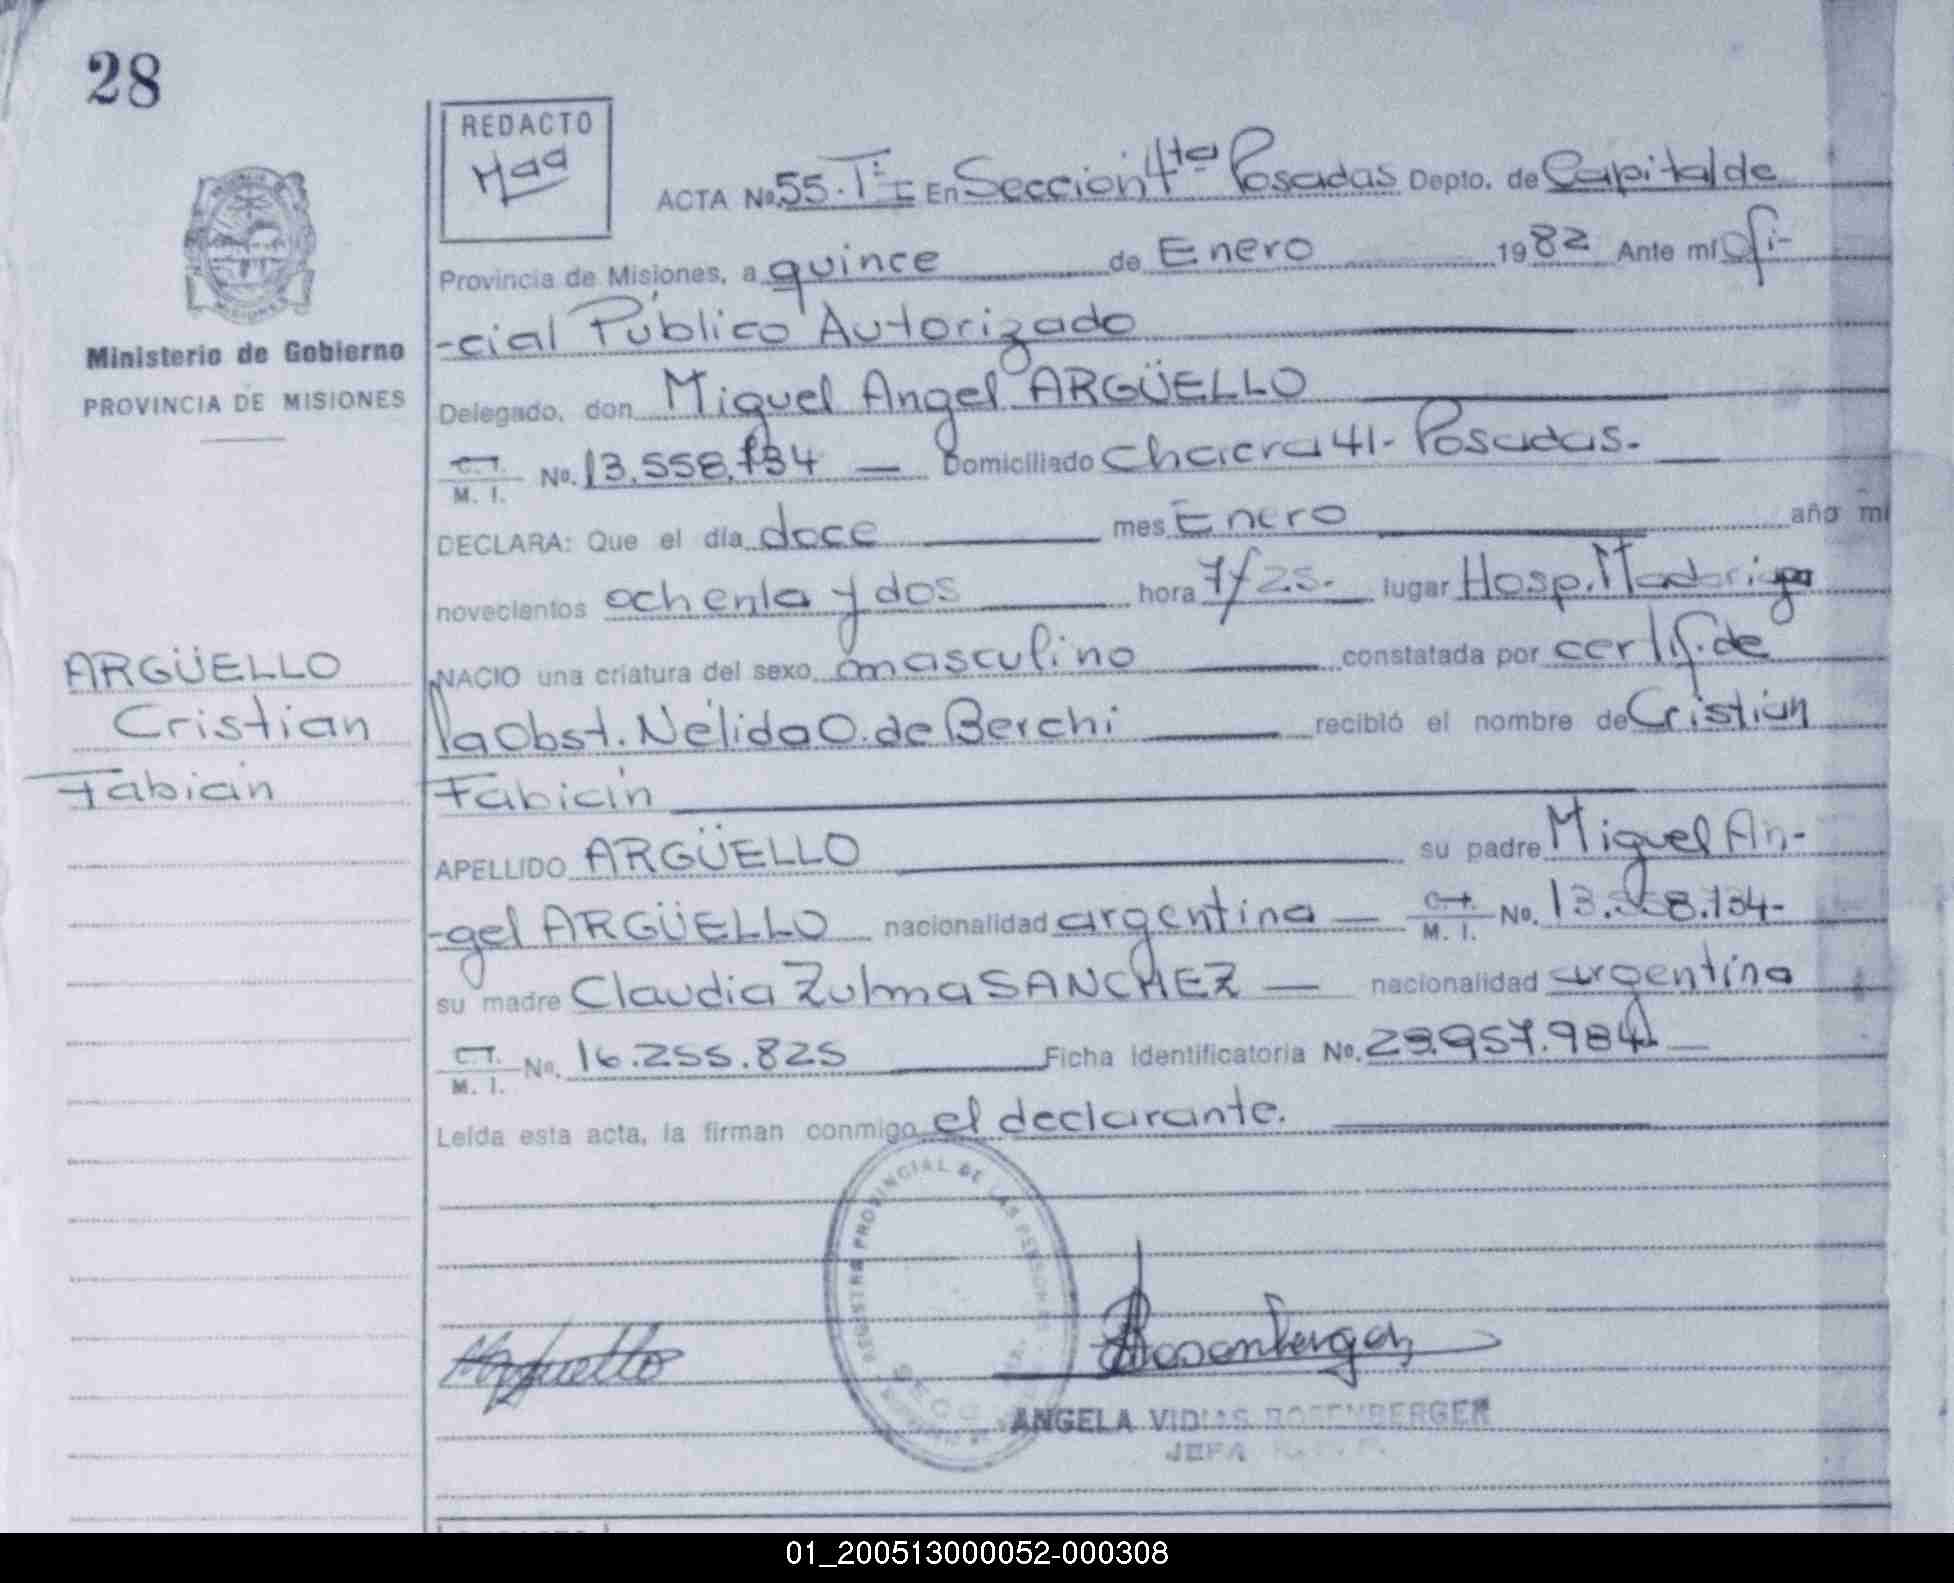 28
REDACTO
Haa
ACTA No. 55.Tº I En Sección 4ta Posadas Depto. de Capital de
Provincia de Misiones, a quince de Enero 1982 Ante mí Ofi-
-cial Público Autorizado
Ministerio de Gobierno
PROVINCIA DE MISIONES
Delegado, don Miguel Angel ARGÜELLO
C.I. M. I. No. 13.558.134 Domiciliado Chacra 41- Posadas.
DECLARA: Que el día doce mes Enero año mil
novecientos ochenta y dos hora 7/25.- lugar Hosp. Madariaga
NACIO una criatura del sexo masculino constatada por certif. de
la Obst. Nélida O. de Berchi recibió el nombre de Cristian
Fabián
ARGÜELLO
Cristian
Fabián
APELLIDO ARGÜELLO su padre Miguel An-
-gel ARGÜELLO nacionalidad argentina C.I. M. I. No. 13.558.134-
su madre Claudia Zulma SANCHEZ nacionalidad argentina
C.I. M. I. No. 16.255.825 Ficha Identificatoria No. 28.957.984
Leída esta acta, la firman conmigo el declarante.
REGISTRO PROVINCIAL DE LAS PERSONAS
MArguello
ARosenberger
ANGELA VIDLAS ROSENBERGER
JEFA
01_200513000052-000308